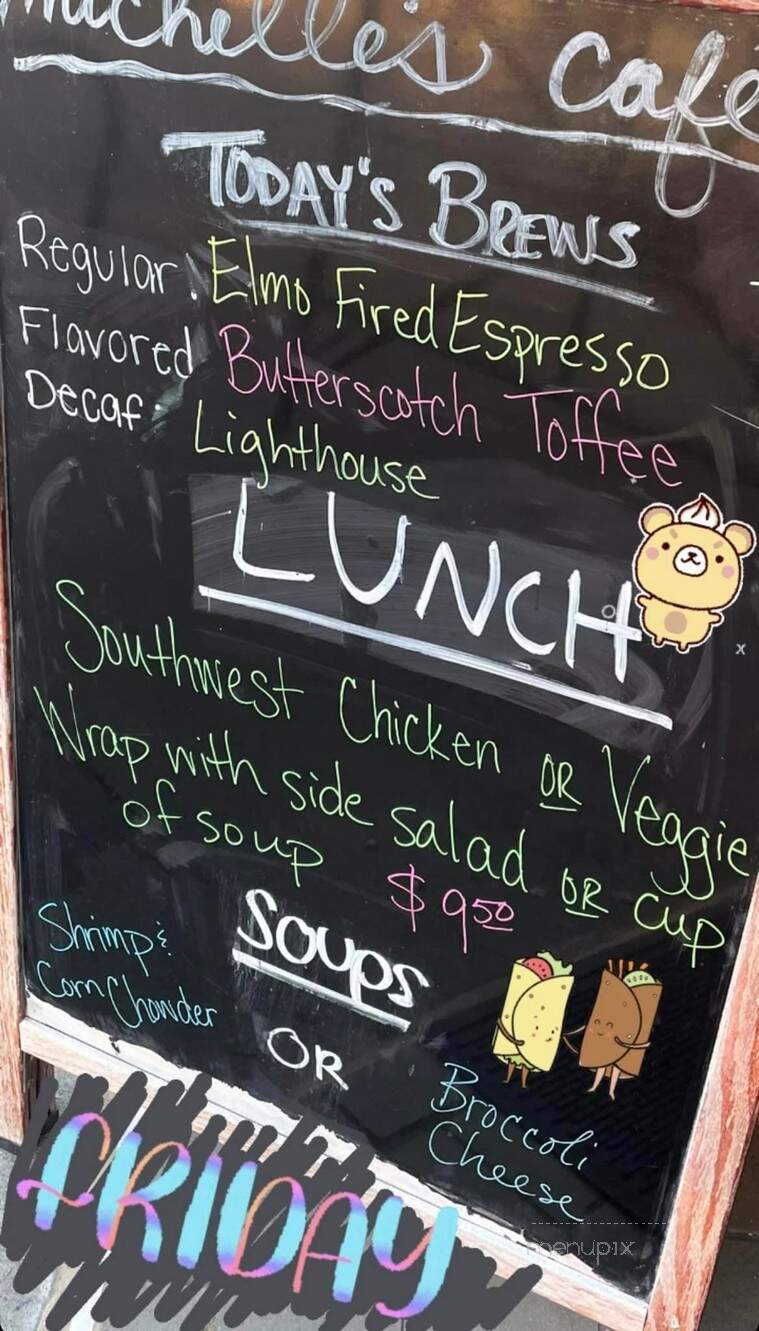 Michelle's café
TODAY'S BREWS
Regular: Elmo Fired Espresso
Flavored Butterscotch Toffee
Decaf: Lighthouse
LUNCH
Southwest Chicken OR Veggie
Wrap with side salad OR cup
of soup $9.50
Soups
Shrimp &
Corn Chowder
OR
Broccoli
Cheese
FRIDAY
menupix